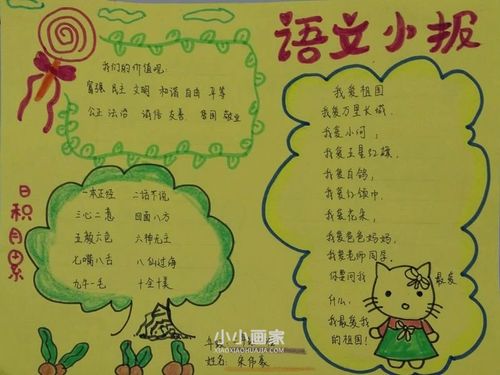 语文小报
我们的价值观:
富强 民主 文明 和谐 自由 平等
公正 法治 诚信 友善 爱国 敬业
日积月累
一本正经 二话不说
三心二意 四面八方
五颜六色 六神无主
七嘴八舌 八仙过海
九牛一毛 十全十美
我爱祖国
我爱万里长城,
我爱小河,
我爱五星红旗,
我爱白鸽,
我爱红领巾,
我爱花朵,
我爱爸爸妈妈,
我爱老师同学,
你要问我 最爱
什么,
我最爱我
的祖国!
小小画家
XIAOXIAOHUAJIA.COM
姓名: